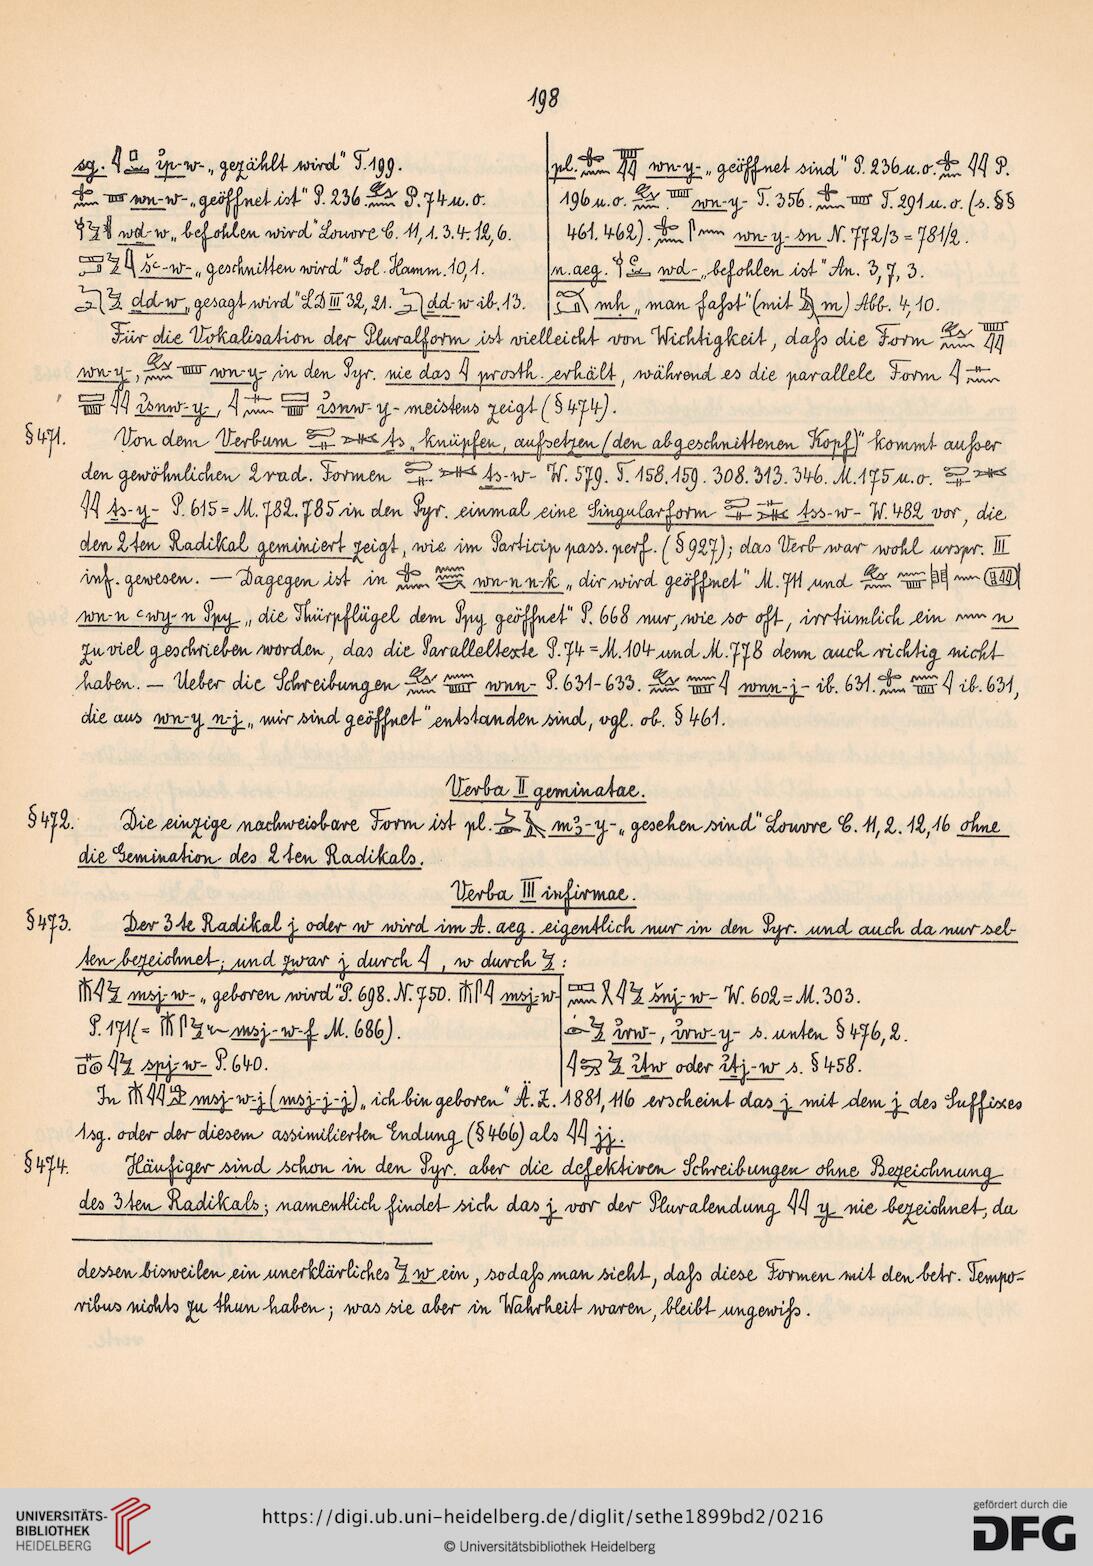 198
sg. ı͗p-w- „gezählt wird" T. 199.
wn-w- „geöffnet ist" P. 236. P. 74 u. o.
wd-w „befohlen wird" Louvre C. 11, 1. 3. 4. 12, 6.
šc-w- „geschnitten wird" Gol. Hamm. 10, 1.
dd-w „gesagt wird" LD III 32, 21. dd-w ib. 13.
pl. wn-y- „geöffnet sind" P. 236 u. o. P.
196 u. o. wn-y- T. 356. T. 291 u. o. (s. §§
461. 462). wn-y-sn N. 772/3 = 781/2.
n. aeg. wd- „befohlen ist" An. 3, 7, 3.
mh „man faßt" (mit m) Abb. 4, 10.
Für die Vokalisation der Pluralform ist vielleicht von Wichtigkeit, daß die Form
wn-y-, wn-y- in den Pyr. nie das prosth. erhält, während es die parallele Form
ı͗snw-y-, ı͗snw-y- meistens zeigt (§ 474).
§ 471. Von dem Verbum ts „knüpfen, aufsetzen (den abgeschnittenen Kopf)" kommt außer
den gewöhnlichen 2rad. Formen ts-w- W. 579. T. 158. 159. 308. 313. 346. M. 175 u. o.
ts-y- P. 615 = M. 782. 785 in den Pyr. einmal eine Singularform tss-w- W. 482 vor, die
den 2ten Radikal geminiert zeigt, wie im Particip pass. perf. (§ 927); das Verb war wohl urspr. III
inf. gewesen. — Dagegen ist in wn-n n-k „dir wird geöffnet" M. 711 und
wn-n cwy-n Ppy „die Thürpflügel dem Ppy geöffnet" P. 668 nur, wie so oft, irrtümlich ein n
zu viel geschrieben worden, das die Paralleltexte P. 74 = M. 104 und M. 778 denn auch richtig nicht
haben. — Ueber die Schreibungen wnn- P. 631-633. wnn-j- ib. 631. ib. 631,
die aus wn-y n-j „mir sind geöffnet" entstanden sind, vgl. ob. § 461.
Verba II geminatae.
§ 472. Die einzige nachweisbare Form ist pl. mꜣ-y- „gesehen sind" Louvre C. 11, 2. 12, 16 ohne
die Gemination des 2ten Radikals.
Verba III infirmae.
§ 473. Der 3te Radikal j oder w wird im A. aeg. eigentlich nur in den Pyr. und auch da nur sel-
ten bezeichnet; und zwar j durch , w durch :
msj-w- „geboren wird" P. 698. N. 750. msj-w-
P. 171 (= msj-w-f M. 686).
spj-w- P. 640.
šnj-w- W. 602 = M. 303.
ı͗rw-, ı͗rw-y- s. unten § 476, 2.
ı͗tw oder ı͗tj-w s. § 458.
In msj-w-j (msj-j-j) „ich bin geboren" Ä. Z. 1881, 116 erscheint das j mit dem j des Suffixes
1sg. oder der diesem assimilierten Endung (§ 466) als jj.
§ 474. Häufiger sind schon in den Pyr. aber die defektiven Schreibungen ohne Bezeichnung
des 3ten Radikals; namentlich findet sich das j vor der Pluralendung y nie bezeichnet, da
dessen bisweilen ein unerklärliches w ein, sodaß man sieht, daß diese Formen mit den betr. Tempo-
ribus nichts zu thun haben; was sie aber in Wahrheit waren, bleibt ungewiß.
UNIVERSITÄTS-
BIBLIOTHEK
HEIDELBERG
https://digi.ub.uni-heidelberg.de/diglit/sethe1899bd2/0216
© Universitätsbibliothek Heidelberg
gefördert durch die
DFG